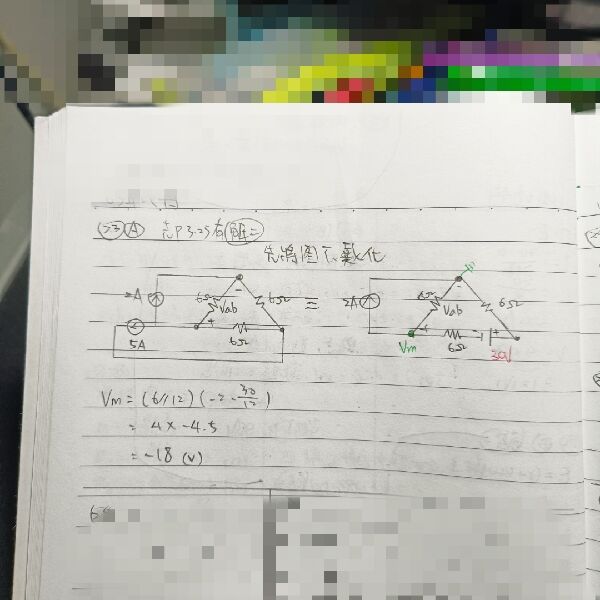 23 A 先P3.25有 解二
先將圖一戴化
2A 6Ω Vab 6Ω ≡ 2A 6Ω Vab 6Ω
+ 6Ω - +
5A Vm 6Ω 30V
Vm = (6//12)(-2-30/12)
= 4x-4.5
= -18 (V)